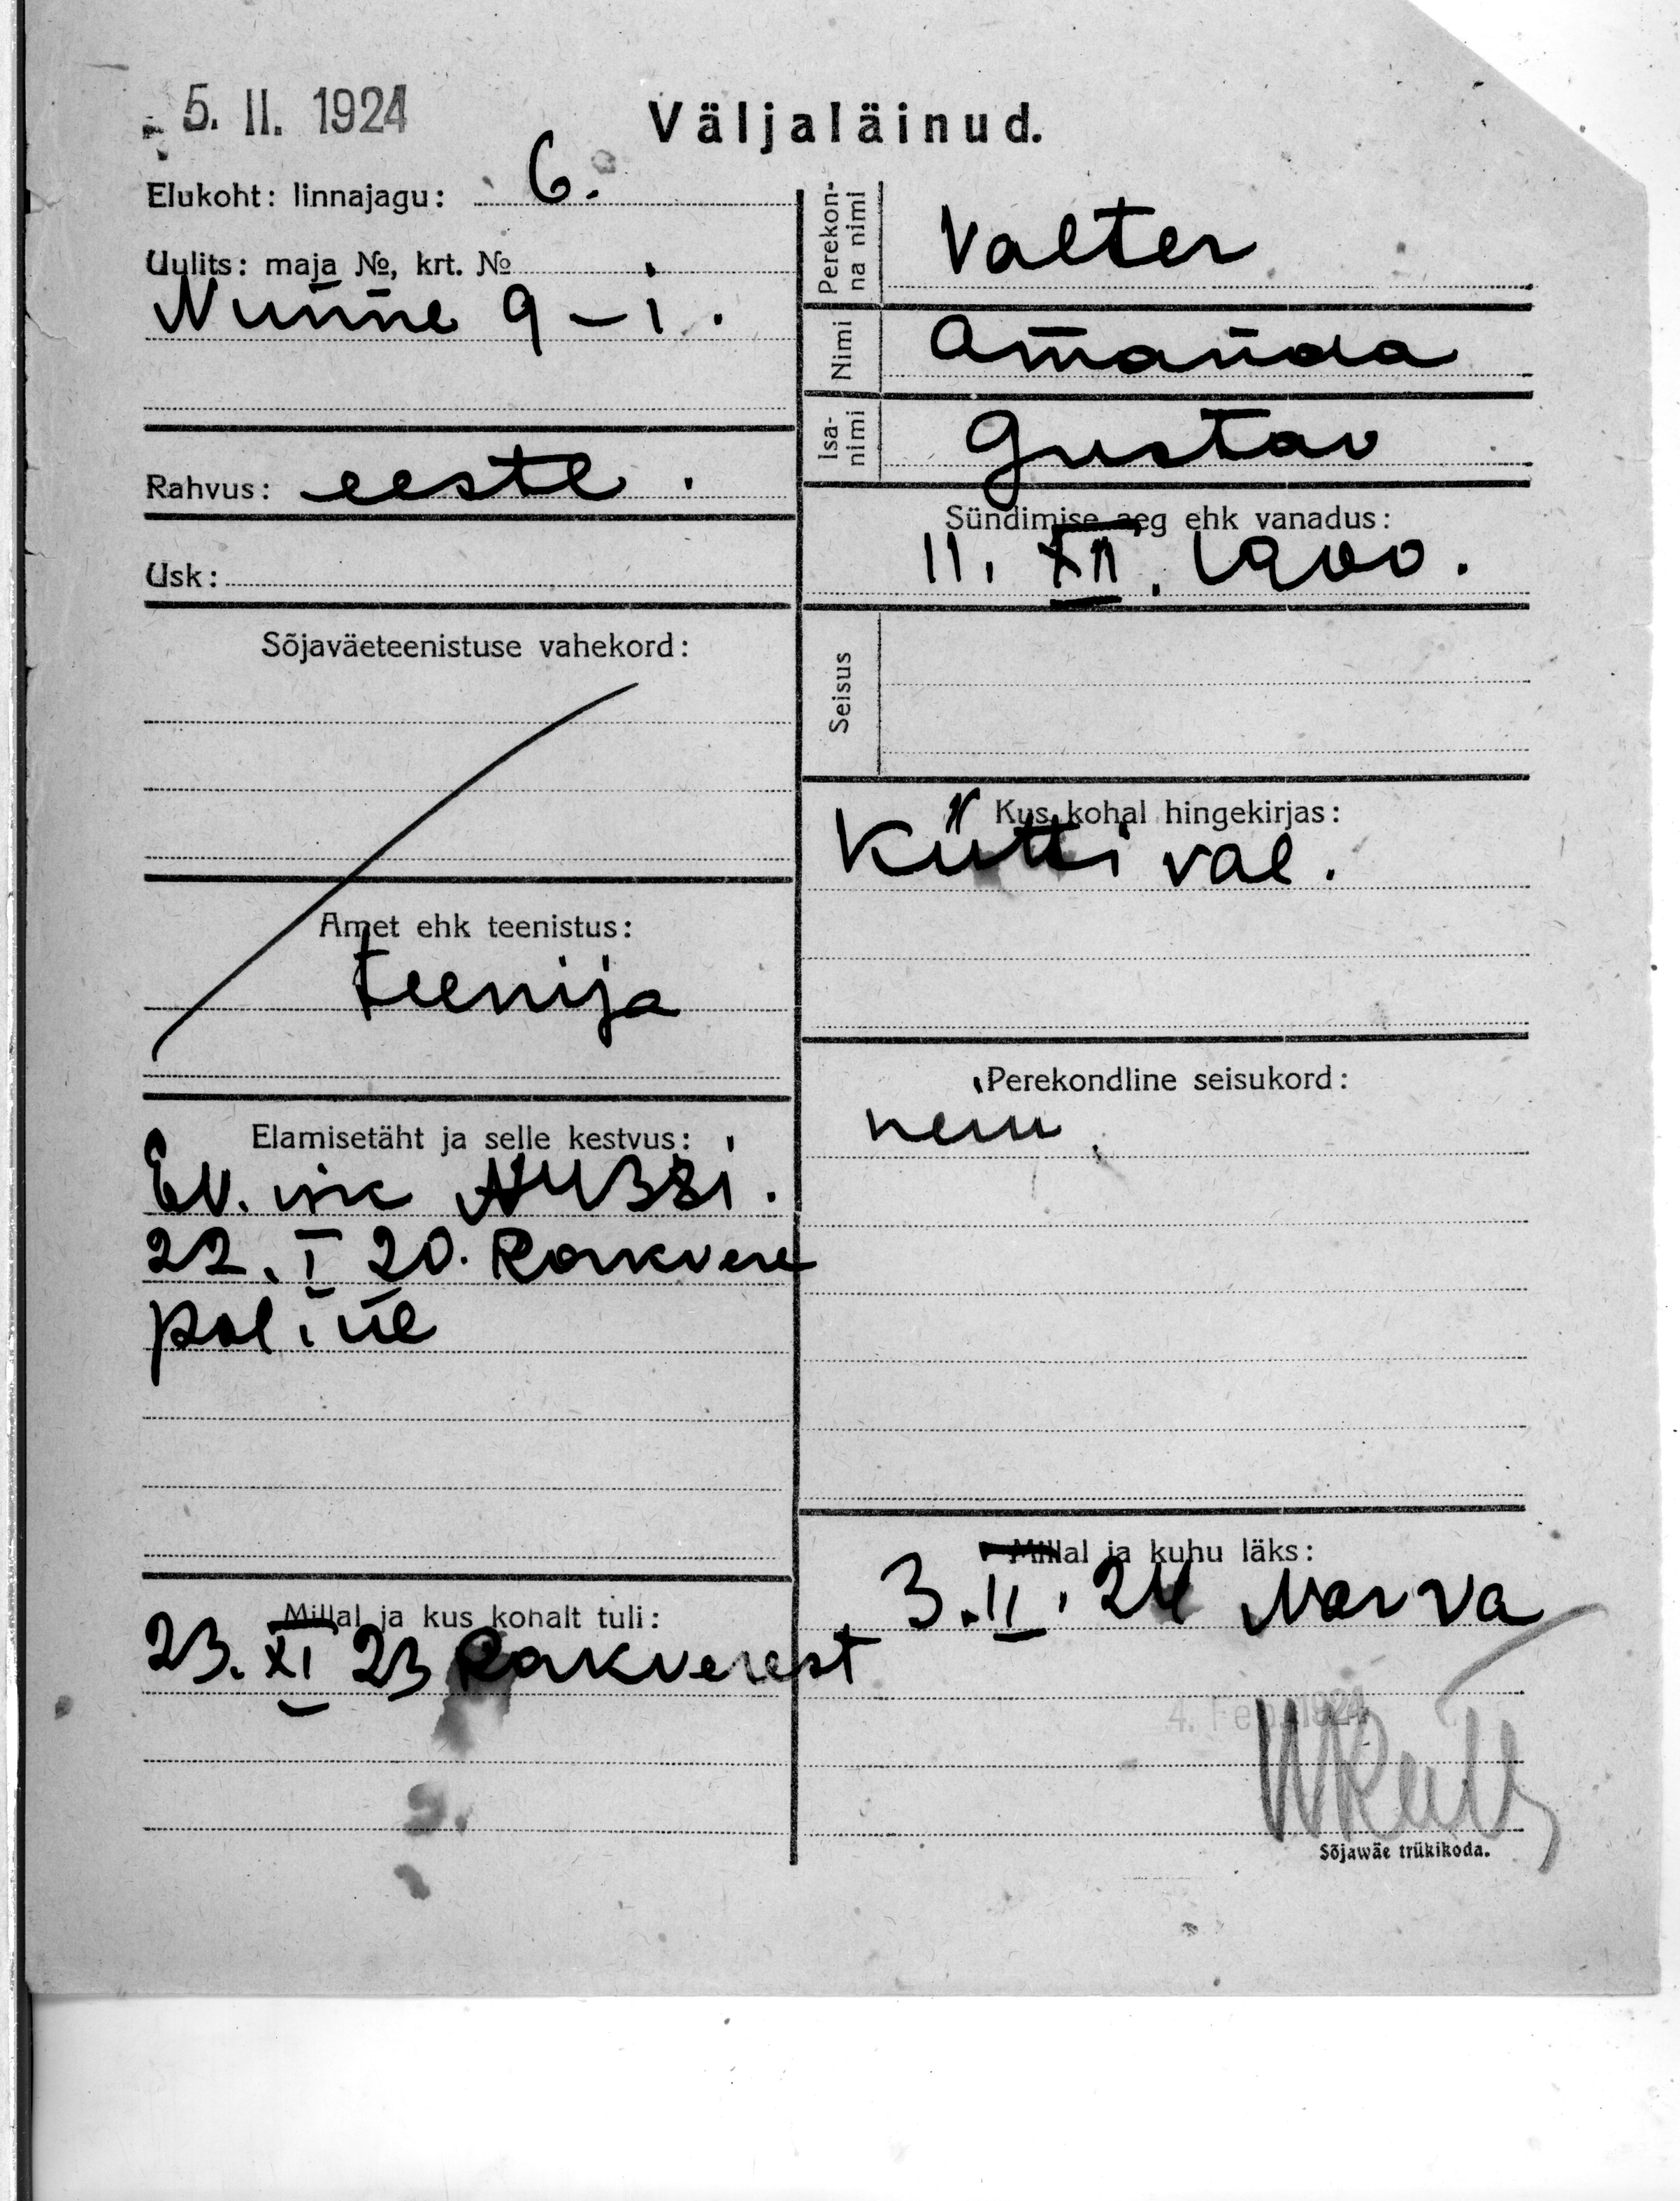 5. II. 1924
Väljaläinud.
Elukoht: linnajagu: 6.
Uulits: maja №, krt. №
Nunne 9 – 1.
Rahvus: eestl.
Usk:
Sõjaväeteenistuse vahekord:
Amet ehk teenistus:
teenija
Elamisetäht ja selle kestvus:
22. I 20. Rakvere
Millal ja kus kohalt tuli:
23. XI 23 Rakverest
Perekonna nimi
Valter
Nimi
Amanda
Isanimi
Gustav
Sündimise aeg ehk vanadus:
11. XII. 1900.
Seisus
Kus kohal hingekirjas:
Kütti val.
Perekondline seisukord:
neiu
Millal ja kuhu läks:
3. II. 24 Narva
4. Feb. 1924
Sõjawäe trükikoda.